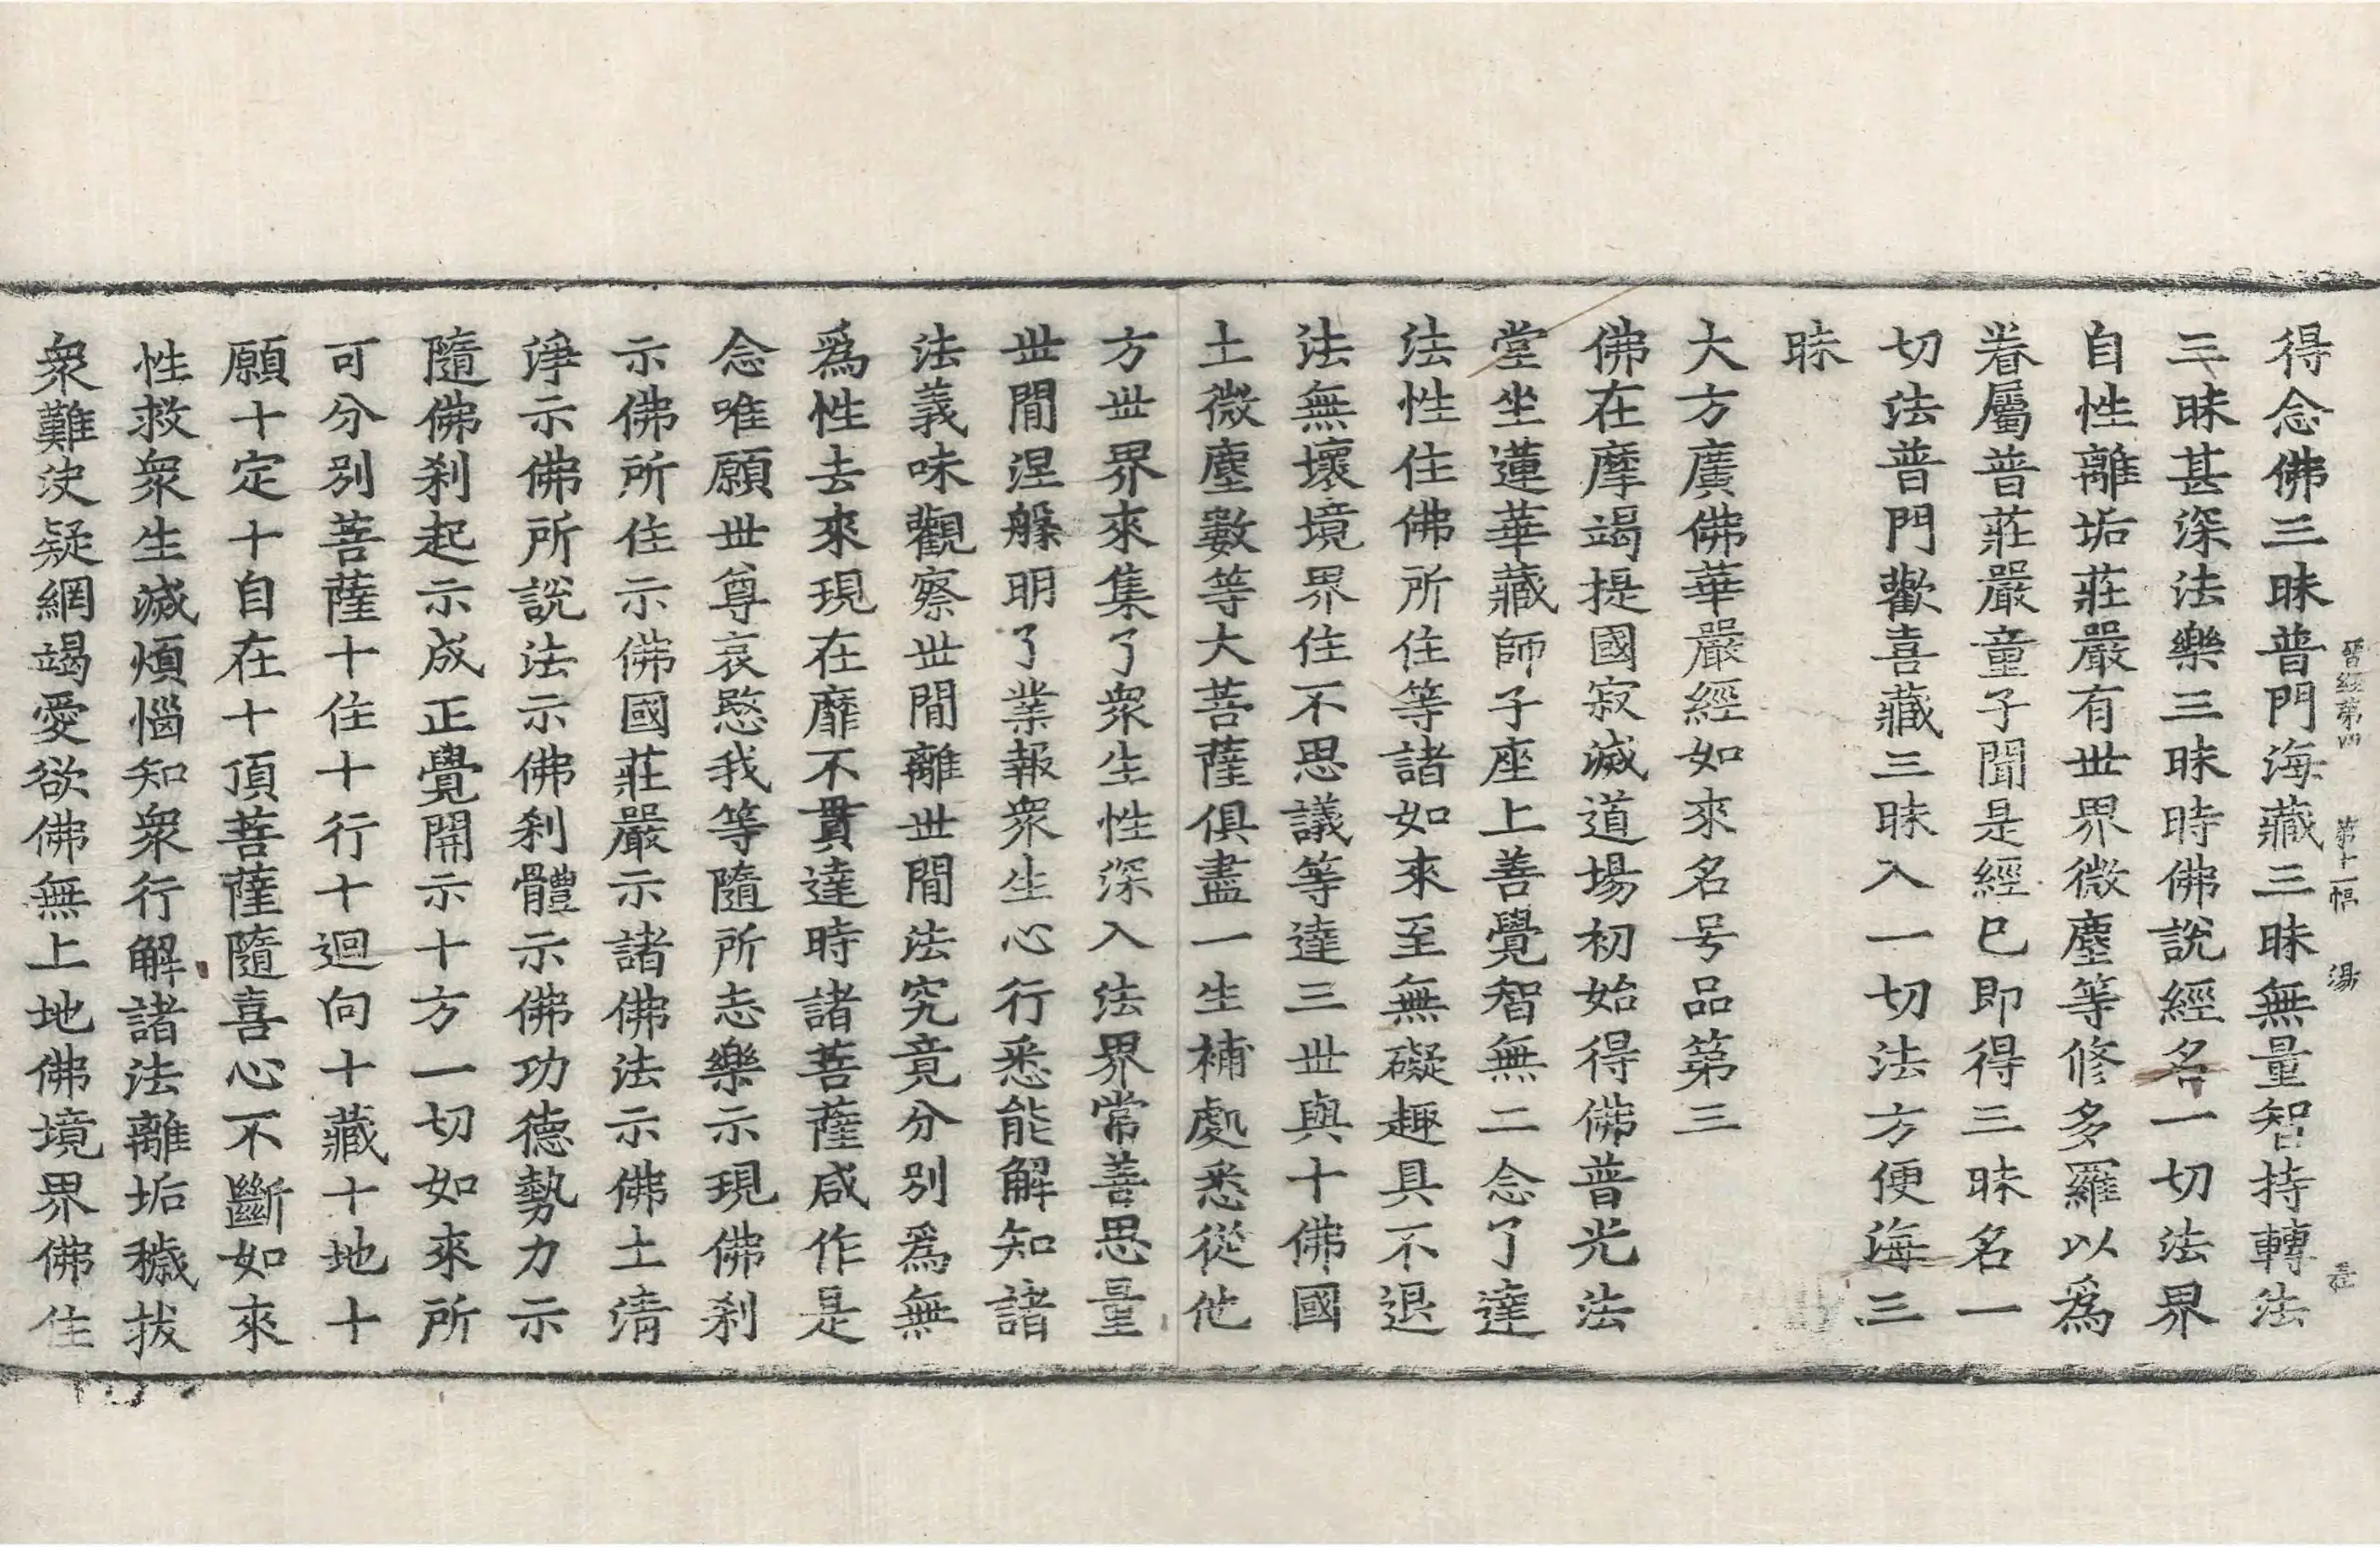 晉經第四 第十一幅 湯
得念佛三昧普門海藏三昧無量智持轉法
三昧甚深法樂三昧時佛說經名一切法界
自性離垢莊嚴有世界微塵等修多羅以為
眷屬普莊嚴童子聞是經已即得三昧名一
切法普門歡喜藏三昧入一切法方便海三
昧
大方廣佛華嚴經如來名号品第三
佛在摩竭提國寂滅道場初始得佛普光法
堂坐蓮華藏師子座上善覺智無二念了達
法性住佛所住等諸如來至無礙趣具不退
法無壞境界住不思議等達三世與十佛國
土微塵數等大菩薩俱盡一生補處悉從他
方世界來集了眾生性深入法界常善思量
世間涅槃明了業報眾生心行悉能解知諸
法義味觀察世間離世間法究竟分別為無
為性去來現在靡不貫達時諸菩薩咸作是
念唯願世尊哀愍我等隨所志樂示現佛剎
示佛所住示佛國莊嚴示諸佛法示佛土清
淨示佛所說法示佛剎體示佛功德勢力示
隨佛剎起示成正覺開示十方一切如來所
可分別菩薩十住十行十迴向十藏十地十
願十定十自在十頂菩薩隨喜心不斷如來
性救眾生滅煩惱知眾行解諸法離垢穢拔
眾難決疑網竭愛欲佛無上地佛境界佛住